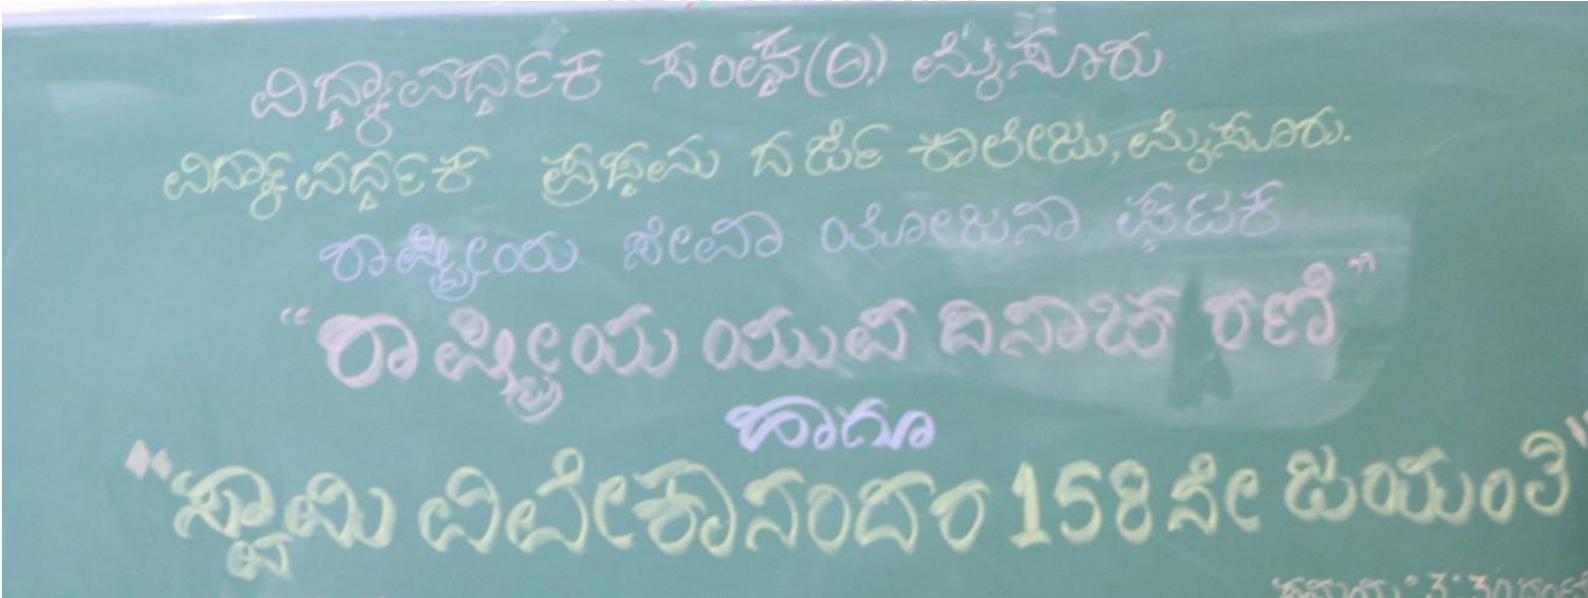 ವಿದ್ಯಾವರ್ಧಕ ಸಂಘ(ರಿ.) ಮೈಸೂರು
ವಿದ್ಯಾವರ್ಧಕ ಪ್ರಥಮ ದರ್ಜೆ ಕಾಲೇಜು, ಮೈಸೂರು.
ರಾಷ್ಟ್ರೀಯ ಸೇವಾ ಯೋಜನಾ ಘಟಕ
"ರಾಷ್ಟ್ರೀಯ ಯುವ ದಿನಾಚರಣೆ"
ಹಾಗೂ
"ಸ್ವಾಮಿ ವಿವೇಕಾನಂದರ 158ನೇ ಜಯಂತಿ"